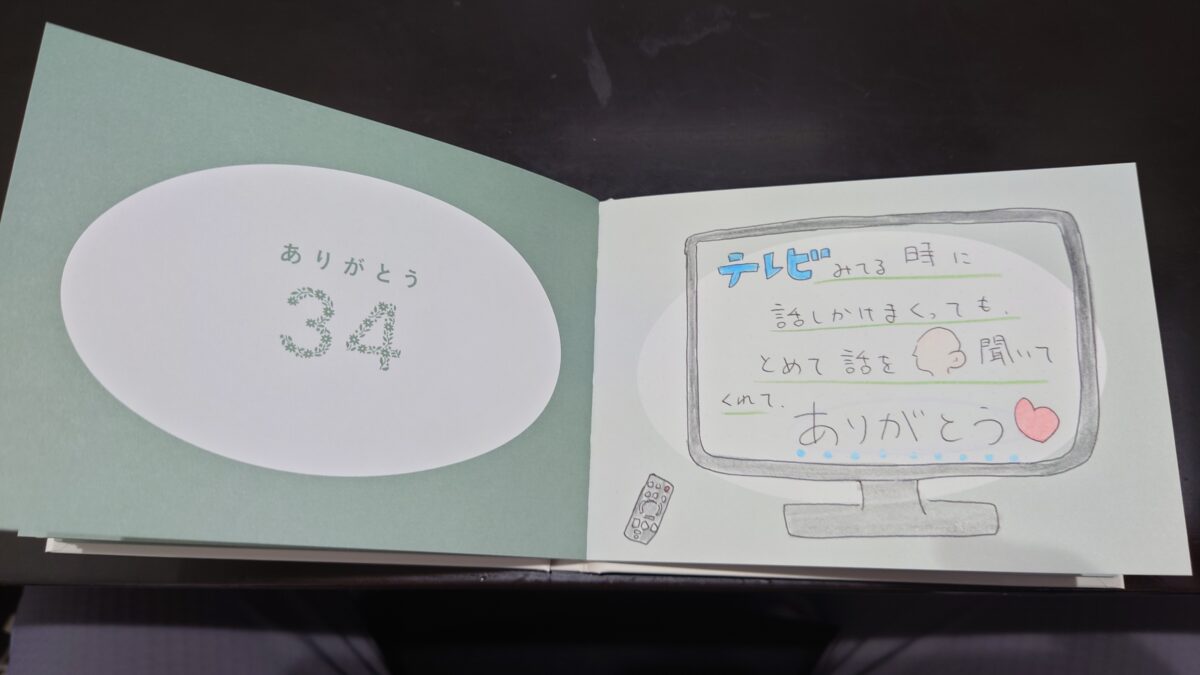 ありがとう
34
テレビみてる時に
話しかけまくっても、
とめて話を聞いて
くれて、
ありがとう